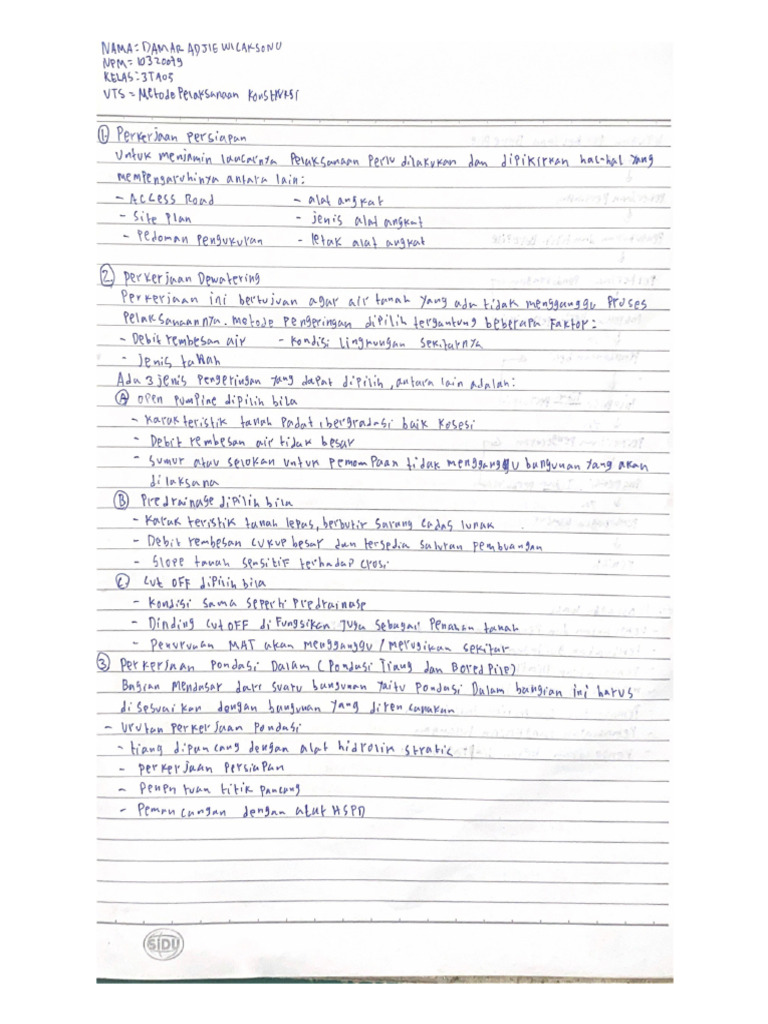 NAMA = DAMAR ADJIE WICAKSONO
NPM = 10320079
KELAS : 3TA05
UTS = Metode Pelaksanaan Konstruksi
① Perkerjaan Persiapan
Untuk menjamin lancarnya Pelaksanaan Perlu dilakukan dan dipikirkan hal-hal yang
mempengaruhinya antara lain:
- Access Road - alat angkat
- Site Plan - jenis alat angkat
- Pedoman Pengukuran - letak alat angkat
② Perkerjaan Dewatering
Perkerjaan ini bertujuan agar air tanah yang ada tidak mengganggu Proses
Pelaksanaannya. Metode Pengeringan dipilih tergantung beberapa Faktor:
- Debit rembesan air - Kondisi Lingkungan sekitarnya
- Jenis tanah
Ada 3 jenis Pengeringan yang dapat dipilih, antara lain adalah:
Ⓐ Open Pumpine dipilih bila
- Karakteristik tanah Padat, bergradasi baik Kosesi
- Debit rembesan air tidak besar
- Sumur atau selokan untuk pemompaan tidak mengganggu bangunan yang akan
dilaksana
Ⓑ Predrainase dipilih bila
- Karakteristik tanah lepas, berbutir sarang cadas lunak
- Debit rembesan cukup besar dan tersedia saluran pembuangan
- Slope tanah sensitif terhadap erosi
Ⓒ Cut OFF dipilih bila
- Kondisi sama seperti Predrainase
- Dinding Cut OFF di Fungsikan Juga sebagai Penahan tanah
- Penurunan MAT akan mengganggu / merugikan sekitar
③ Perkerjaan Pondasi Dalam (Pondasi Tiang dan Bored Pile)
Bagian Mendasar dari suatu bangunan yaitu Pondasi Dalam bangian ini harus
disesuaikan dengan bangunan yang direncanakan
- Urutan Perkerjaan Pondasi
- tiang dipancang dengan alat hidrolin stratic
- Perkerjaan Persiapan
- Penentuan titik Pancang
- Pemancangan dengan alat HSPD
SIDU